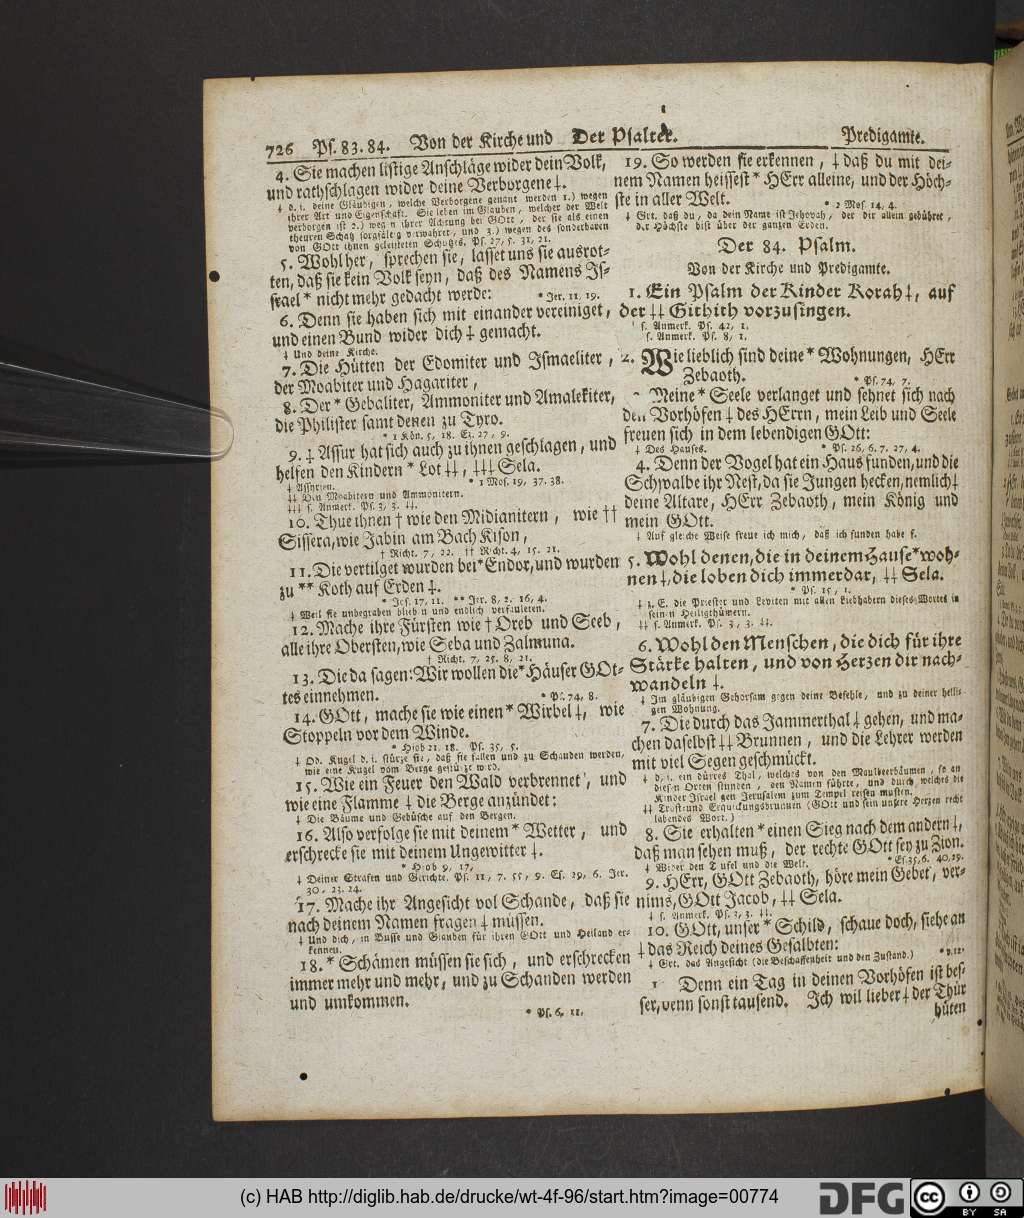 726 Ps. 83. 84. Von der Kirche und Der Psalter. Predigamte.
4. Sie machen listige Anschläge wider dein Volk,
und rathschlagen wider deine Verborgene ‡.
‡ d. i. deine Gläubigen, welche Verborgene genant werden 1.) wegen
ihrer Art und Eigenschaft. Sie leben im Glauben, welcher der Welt
verborgen ist 2.) wegen ihrer Achtung bey GOtt, der sie als einen
theuren Schatz sorgfältig verwahret, und 3.) wegen des sonderbaren
von GOtt ihnen geleisteten Schutzes. Ps. 27, 5. 31, 21.
5. Wohl her, sprechen sie, lasset uns sie ausrot-
ten, daß sie kein Volk seyn, daß des Namens Is-
srael * nicht mehr gedacht werde: * Jer. 11, 19.
6. Denn sie haben sich mit einander vereiniget,
und einen Bund wider dich ‡ gemacht.
‡ Und deine Kirche.
7. Die Hütten der Edomiter und Ismaeliter,
der Moabiter und Hagariter,
8. Der * Gebaliter, Ammoniter und Amalekiter,
die Philister samt denen zu Tyro.
* 1 Kön. 5, 18. Ez. 27, 9.
9. ‡ Assur hat sich auch zu ihnen geschlagen, und
helfen den Kindern * Lot ‡‡, ‡‡‡ Sela.
‡ Assyrien. * 1 Mos. 19, 37. 38.
‡‡ Den Moabitern und Ammonitern.
‡‡‡ s. Anmerk. Ps. 3, 3. ‡‡.
10. Thue ihnen † wie den Midianitern, wie ††
Sissera, wie Jabin am Bach Kison,
† Richt. 7, 22. †† Richt. 4, 15. 21.
11. Die vertilget wurden bei * Endor, und wurden
zu ** Koth auf Erden ‡.
* Jos. 17, 11. ** Jer. 8, 2. 16, 4.
‡ Weil sie unbegraben blieben und endlich verfauleten.
12. Mache ihre Fürsten wie † Oreb und Seeb,
alle ihre Obersten, wie Seba und Zalmuna.
† Richt. 7, 25. 8, 21.
13. Die da sagen: Wir wollen die * Häuser GOt-
tes einnehmen. * Ps. 74, 8.
14. GOtt, mache sie wie einen * Wirbel ‡, wie
Stoppeln vor dem Winde.
* Hiob 21. 18. Ps. 35, 5.
‡ Od. Kugel d. i. stürze sie, daß sie fallen und zu Schanden werden,
wie eine Kugel vom Berge gestürzt wird.
15. Wie ein Feuer den Wald verbrennet, und
wie eine Flamme ‡ die Berge anzündet:
‡ Die Bäume und Gebüsche auf den Bergen.
16. Also verfolge sie mit deinem * Wetter, und
erschrecke sie mit deinem Ungewitter ‡.
* Hiob 9, 17,
‡ Deiner Strafen und Gerichte. Ps. 11, 7. 55, 9. Es. 29, 6. Jer.
30, 23. 24.
17. Mache ihr Angesicht vol Schande, daß sie
nach deinem Namen fragen ‡ müssen.
‡ Und dich, in Busse und Glauben für ihren GOtt und Heiland er-
kennen.
18. * Schämen müssen sie sich, und erschrecken
immer mehr und mehr, und zu Schanden werden
und umkommen. * Ps. 6, 11.
19. So werden sie erkennen, ‡ daß du mit dei-
nem Namen heissest * HErr alleine, und der Höch-
ste in aller Welt. * 2 Mos. 14, 4.
‡ Grt. daß du, da dein Name ist Jehovah, der dir allein gebühret,
der Höchste bist über der ganzen Erden.
Der 84. Psalm.
Von der Kirche und Predigamte.
1. Ein Psalm der Kinder Korah ‡, auf
der ‡‡ Githith vorzusingen.
s. Anmerk. Ps. 42, 1.
s. Anmerk. Ps. 8, 1.
2. Wie lieblich sind deine * Wohnungen, HErr
Zebaoth. * Ps. 74, 7.
Meine * Seele verlanget und sehnet sich nach
den Vorhöfen ‡ des HErrn, mein Leib und Seele
freuen sich in dem lebendigen GOtt:
‡ Des Hauses. * Ps. 26, 6. 7. 27, 4.
4. Denn der Vogel hat ein Haus funden, und die
Schwalbe ihr Nest, da sie Jungen hecken, nemlich ‡
deine Altare, HErr Zebaoth, mein König und
mein GOtt.
‡ Auf gleiche Weise freue ich mich, daß ich funden habe s.
5. Wohl denen, die in deinem Hause * woh-
nen ‡, die loben dich immerdar, ‡‡ Sela.
* Ps. 15, 1.
‡ z. E. die Priester und Leviten mit allen Liebhabern dieses Wortes in
seinen Heiligthümern.
‡‡ s. Anmerk. Ps. 3, 3. ‡‡.
6. Wohl den Menschen, die dich für ihre
Stärke halten, und von Herzen dir nach-
wandeln ‡.
‡ Im gläubigen Gehorsam gegen deine Befehle, und zu deiner heili-
gen Wohnung.
7. Die durch das Jammerthal ‡ gehen, und ma-
chen daselbst ‡‡ Brunnen, und die Lehrer werden
mit viel Segen geschmückt.
‡ d. i. ein dürres Thal, welches von den Maulbeerbäumen, so an
diesen Orten stunden, den Namen führte, und durch welches die
Kinder Israel gen Jerusalem zum Tempel reisen musten.
‡‡ Trost- und Erquickungsbrunnen (GOtt und sein unsere Herzen recht
labendes Wort.)
8. Sie erhalten * einen Sieg nach dem andern ‡,
daß man sehen muß, der rechte GOtt sey zu Zion.
‡ Wider den Teufel und die Welt. * Es. 35, 6. 40, 29.
9. HErr, GOtt Zebaoth, höre mein Gebet, ver-
nims, GOtt Jacob, ‡‡ Sela.
‡ s. Anmerk. Ps. 3, 3. ‡‡.
10. GOtt, unser * Schild, schaue doch, siehe an
‡ das Reich deines Gesalbten: * v. 12.
‡ Grt. das Angesicht (die Beschaffenheit und den Zustand.)
Denn ein Tag in deinen Vorhöfen ist bes-
ser, denn sonst tausend. Ich wil lieber ‡ der Thür
hüten
(c) HAB http://diglib.hab.de/drucke/wt-4f-96/start.htm?image=00774
DFG
cc BY SA